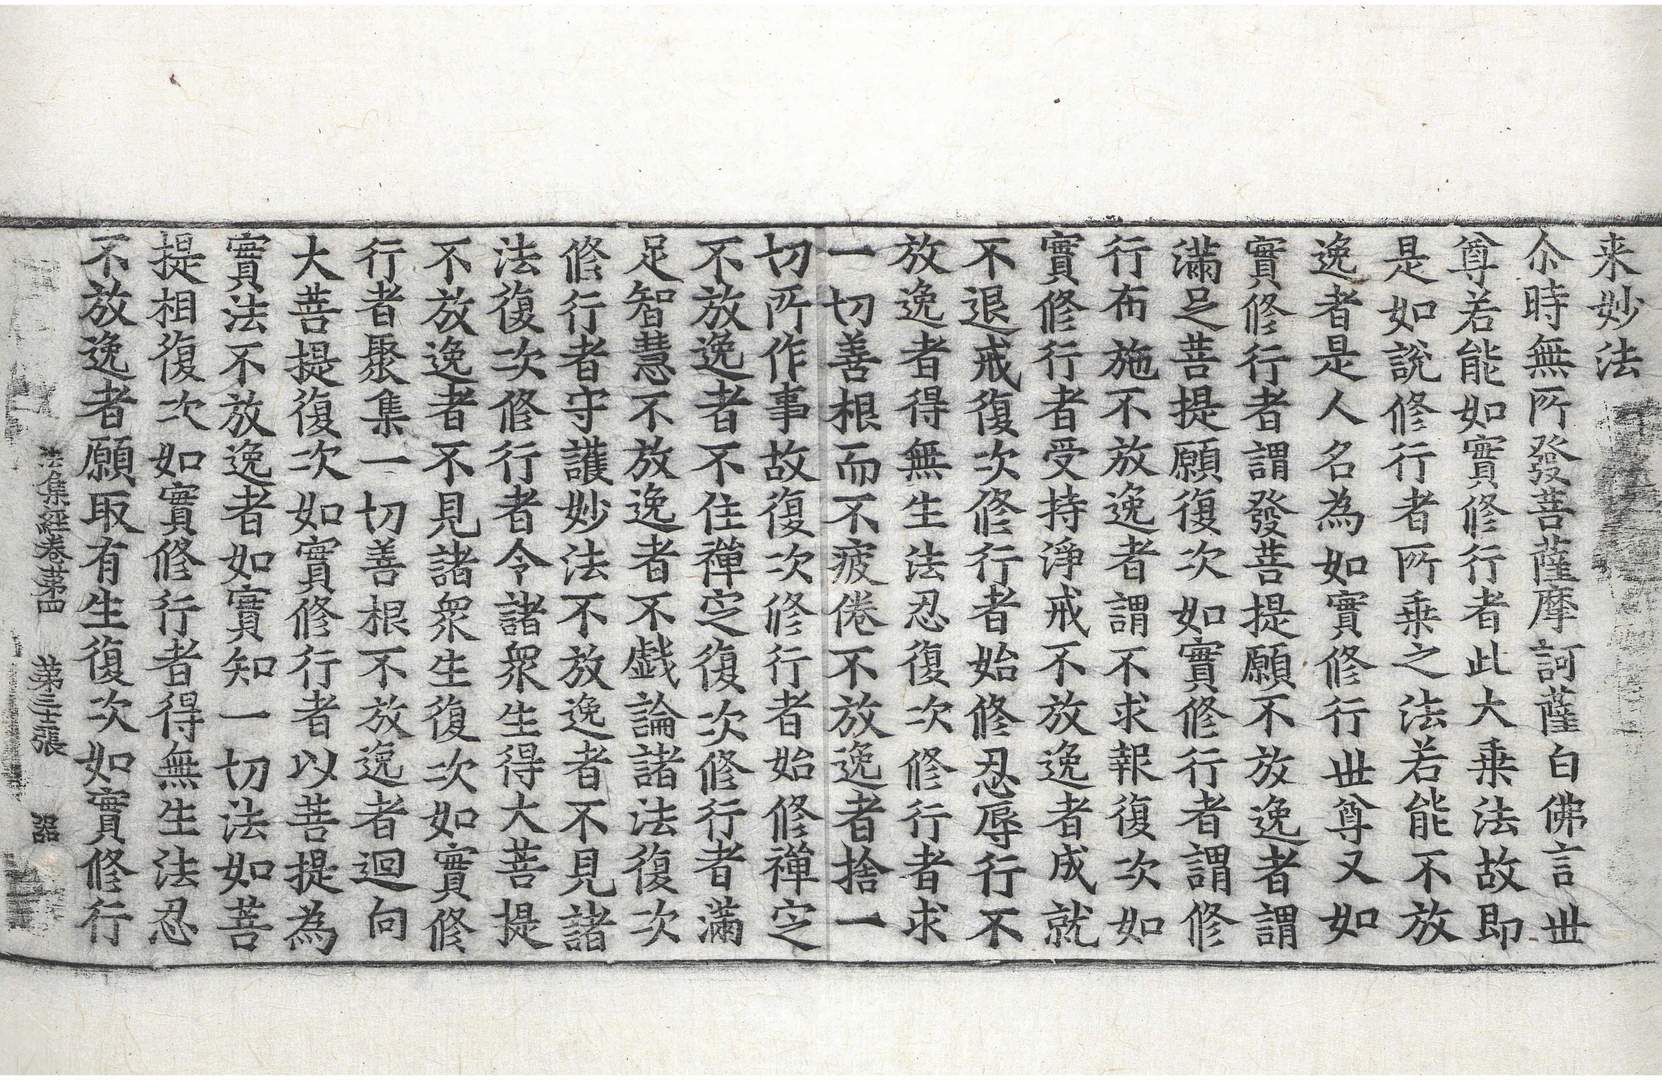 来妙法
尒時無所發菩薩摩訶薩白佛言世
尊若能如實修行者此大乗法故即
是如說修行者所乗之法若能不放
逸者是人名為如實修行世尊又如
實修行者謂發菩提願不放逸者謂
滿足菩提願復次如實修行者謂修
行布施不放逸者謂不求報復次如
實修行者受持淨戒不放逸者成就
不退戒復次修行者始修忍辱行不
放逸者得無生法忍復次修行者求
一切善根而不疲倦不放逸者捨一
切所作事故復次修行者始修禪定
不放逸者不住禪定復次修行者滿
足智慧不放逸者不戯論諸法復次
修行者守護妙法不放逸者不見諸
法復次修行者令諸衆生得大菩提
不放逸者不見諸衆生復次如實修
行者聚集一切善根不放逸者迴向
大菩提復次如實修行者以菩提為
實法不放逸者如實知一切法如菩
提相復次如實修行者得無生法忍
不放逸者願取有生復次如實修行
法集經卷第四 第二十張